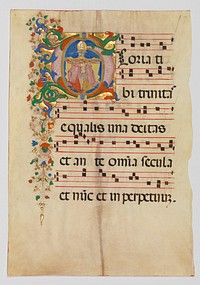 Gloria ti
bi trinitas
equalis una deitas
et ante omĩa secula
et nũc et in perpetuum.